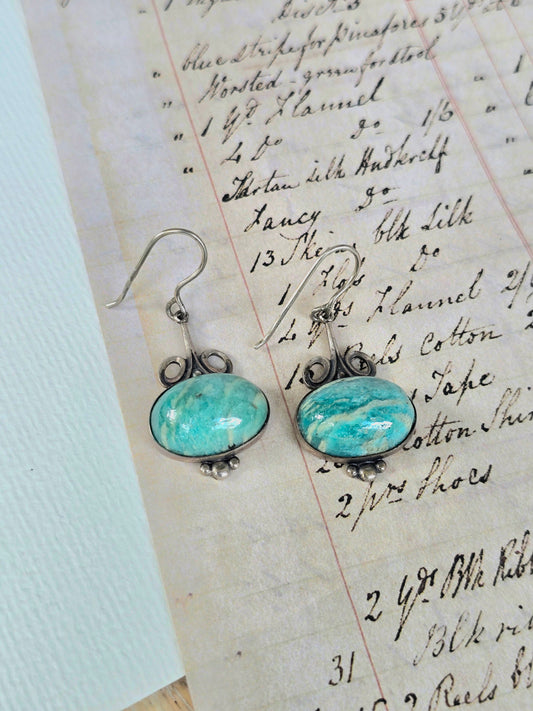 Dist 3
" blue stripe for Pinafores 5 Yds
" Worsted - green for stool
" 1 Yd Flannel " 1
" 4 Do Do 1/6 "
Tartan silk Hndkrchf
Fancy Do
13 Skeins blk Silk
1 Do
4 Yds Flannel 2/
Reels Cotton 2
Tape
Cotton
2 prs Shoes
2 Yds Blk Rib
Blk
31
2 Reels bl